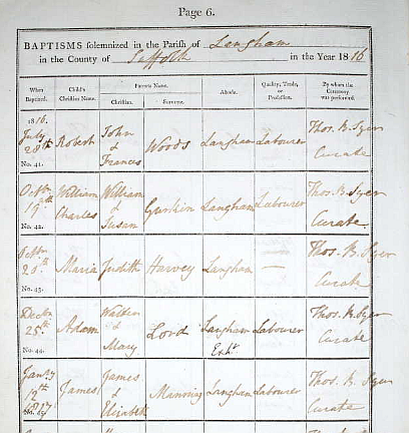 Page 6.
BAPTISMS solemnized in the Parish of Langham
in the County of Suffolk in the Year 1816
When Baptized. Child's Christian Name. Parents Name. Christian. Surname. Abode. Quality, Trade, or Profession. By whom the Ceremony was performed.
1816.
July 28th Robert John & Frances Woods Langham Labourer Thos. B. Syer Curate
No. 41.
Octbr 19th William Charles William & Susan Langham Labourer Thos. B. Syer Curate
No. 42.
20th Maria Judith Harvey Langham — Thos. B. Syer Curate
No. 43.
Decbr 25th Adam Walter & Mary Lord Langham Labourer Thos. B. Syer Curate
No. 44.
Jany 12th 1817 James James & Elizabeth Manning Langham Labourer Thos. B. Syer Curate
No. 45.